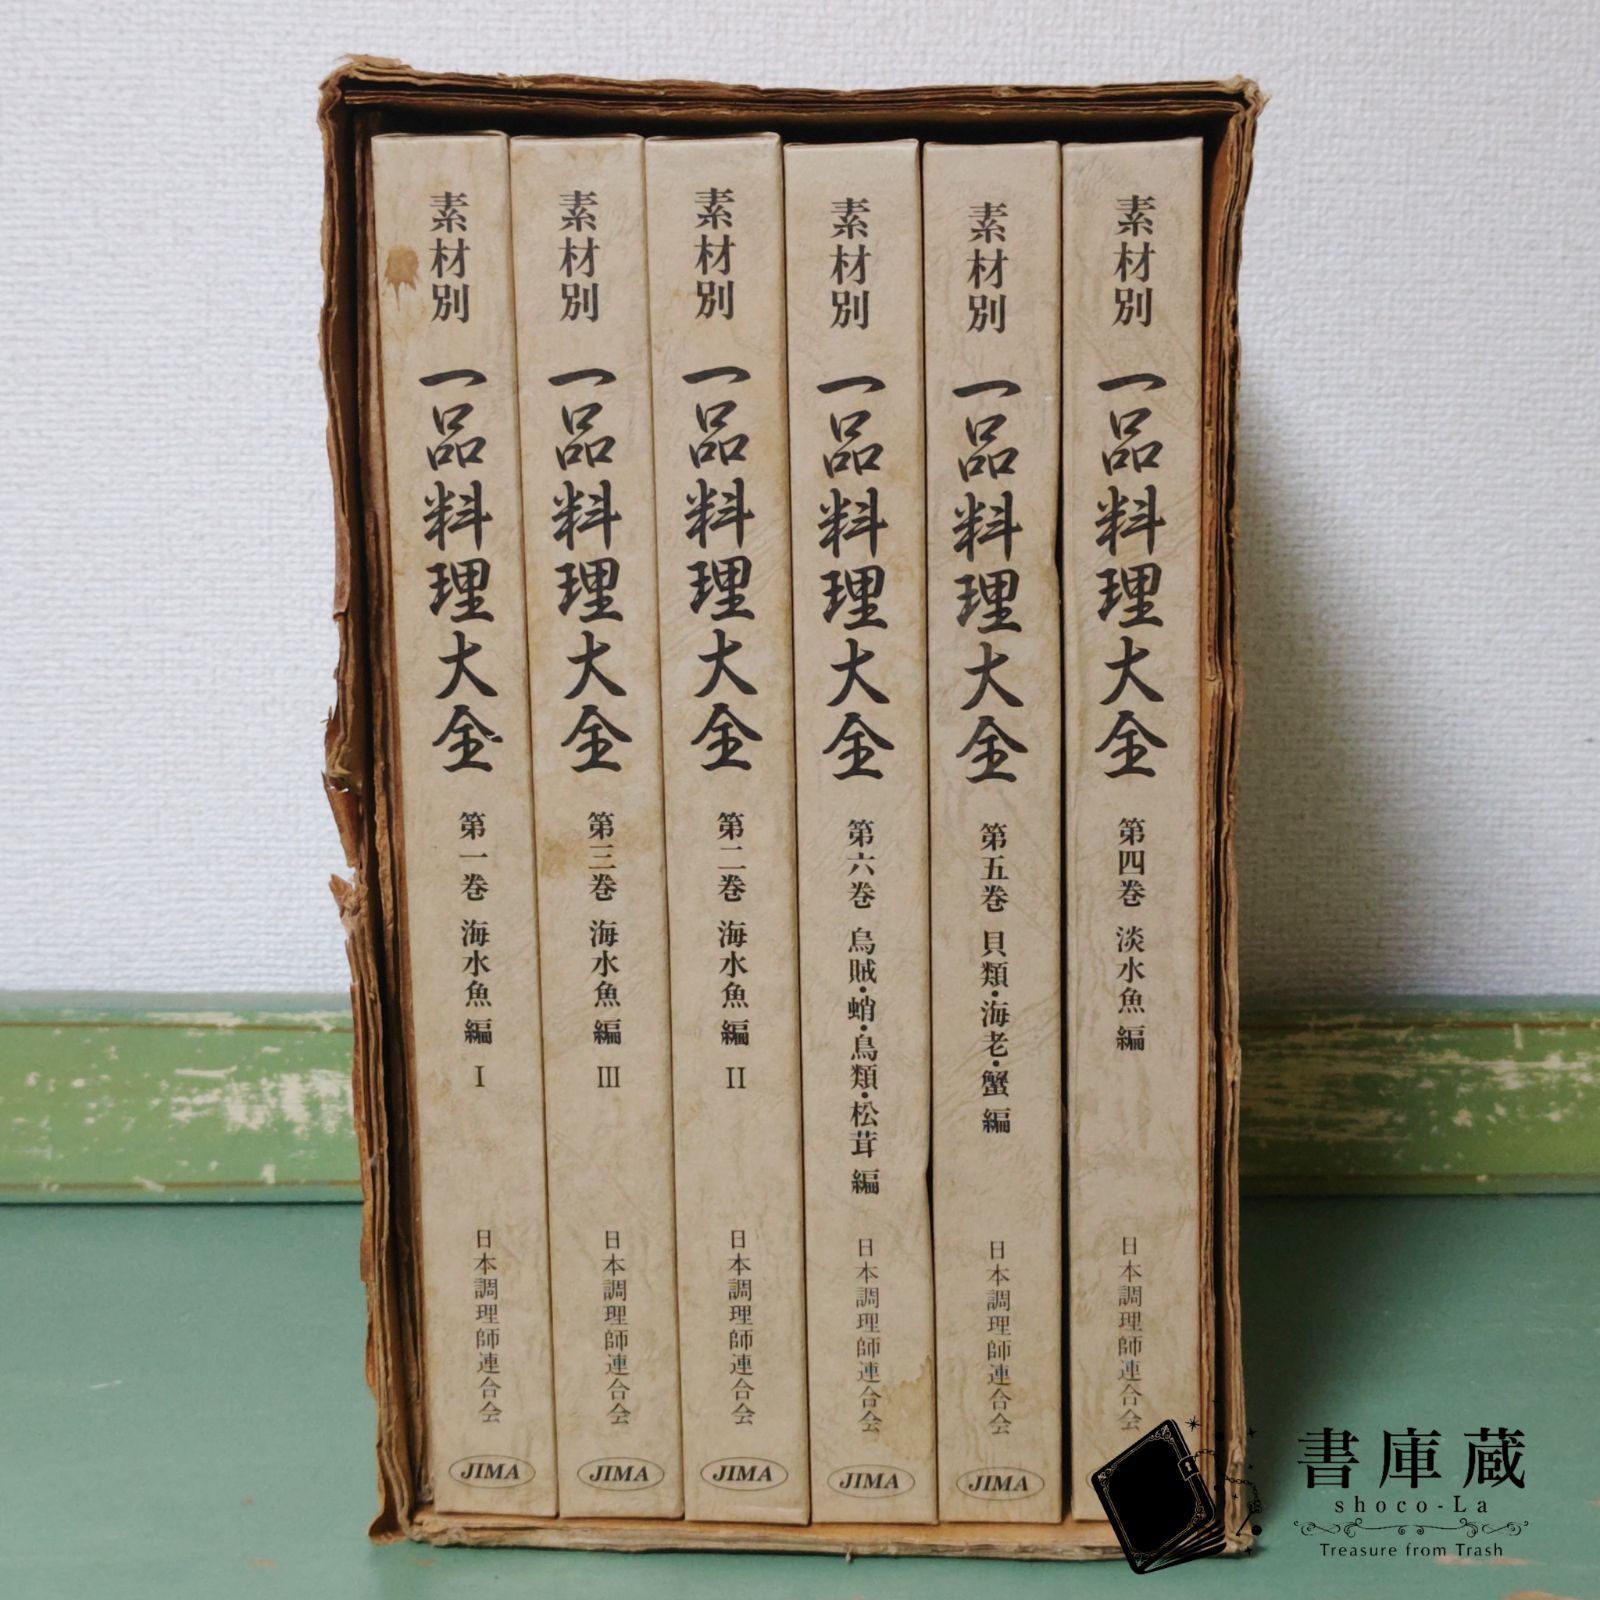 素材別 一品料理大全 第一巻 海水魚編 I 日本調理師連合会 JIMA
素材別 一品料理大全 第三巻 海水魚編 III 日本調理師連合会 JIMA
素材別 一品料理大全 第二巻 海水魚編 II 日本調理師連合会 JIMA
素材別 一品料理大全 第六巻 烏賊・蛸・鳥類・松茸編 日本調理師連合会 JIMA
素材別 一品料理大全 第五巻 貝類・海老・蟹編 日本調理師連合会 JIMA
素材別 一品料理大全 第四巻 淡水魚編 日本調理師連合会
書庫蔵
shoco-La
Treasure from Trash